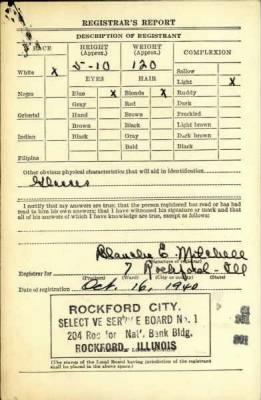 REGISTRAR'S REPORT
DESCRIPTION OF REGISTRANT
RACE HEIGHT (Approx.) WEIGHT (Approx.) COMPLEXION
5-10 120
White X Sallow
EYES HAIR Light X
Negro Blue X Blonde X Ruddy
Gray Red Dark
Oriental Hazel Brown Freckled
Brown Black Light brown
Indian Black Gray Dark brown
Bald Black
Filipino
Other obvious physical characteristics that will aid in identification
Glasses
I certify that my answers are true; that the person registered has read or has had
read to him his own answers; that I have witnessed his signature or mark and that
all of his answers of which I have knowledge are true, except as follows:
Blanche E. Mitchell
(Signature of registrar)
Registrar for Rockford - Ill
(Precinct) (Ward) (City or county) (State)
Date of registration Oct. 16, 1940
ROCKFORD CITY.
SELECTIVE SERVICE BOARD No. 1
204 Rockford Nat'l. Bank Bldg.
ROCKFORD, ILLINOIS
(The stamp of the Local Board having jurisdiction of the registrant
shall be placed in the above space.)